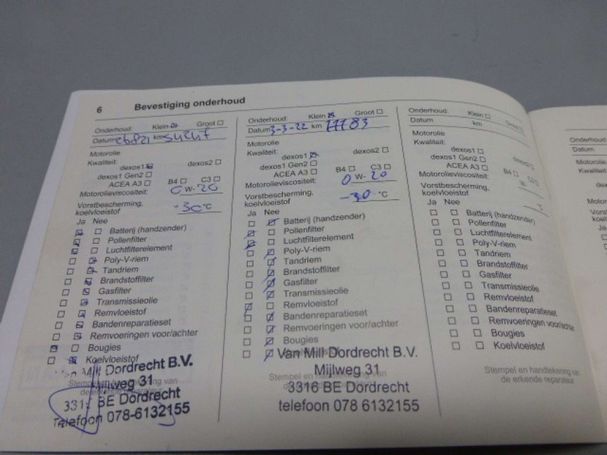 6 Bevestiging onderhoud
Onderhoud: Klein Groot
Datum km
Motorolie
Kwaliteit:
dexos1 dexos2
dexos1 Gen2
ACEA A3 B4 C3
Motorolieviscositeit:
0 W- 20
Vorstbescherming,
koelvloeistof
-30 °C
Ja Nee
Batterij (handzender)
Pollenfilter
Luchtfilterelement
Poly-V-riem
Tandriem
Brandstoffilter
Gasfilter
Transmissieolie
Remvloeistof
Bandenreparatieset
Remvoeringen voor/achter
Bougies
Koelvloeistof
Van Mill Dordrecht B.V.
Mijlweg 31
3316 BE Dordrecht
Telefoon 078-6132155
Onderhoud: Klein Groot
Datum 3-3-22 km 77183
Motorolie
Kwaliteit:
dexos1 dexos2
dexos1 Gen2
ACEA A3 B4 C3
Motorolieviscositeit:
0 W- 20
Vorstbescherming,
koelvloeistof
-30 °C
Ja Nee
Batterij (handzender)
Pollenfilter
Luchtfilterelement
Poly-V-riem
Tandriem
Brandstoffilter
Gasfilter
Transmissieolie
Remvloeistof
Bandenreparatieset
Remvoeringen voor/achter
Bougies
Van Mill Dordrecht B.V.
Mijlweg 31
3316 BE Dordrecht
telefoon 078 6132155
Onderhoud: Klein Groot
Datum km
Motorolie
Kwaliteit:
dexos1 dexos2
dexos1 Gen2
ACEA A3 B4 C3
Motorolieviscositeit:
W-
Vorstbescherming,
koelvloeistof
°C
Ja Nee
Batterij (handzender)
Pollenfilter
Luchtfilterelement
Poly-V-riem
Tandriem
Brandstoffilter
Gasfilter
Transmissieolie
Remvloeistof
Bandenreparatieset
Remvoeringen voor/achter
Bougies
Koelvloeistof
Stempel en handtekening van
de erkende reparateur
Onderhoud:
Datum
Motorolie
Kwaliteit: